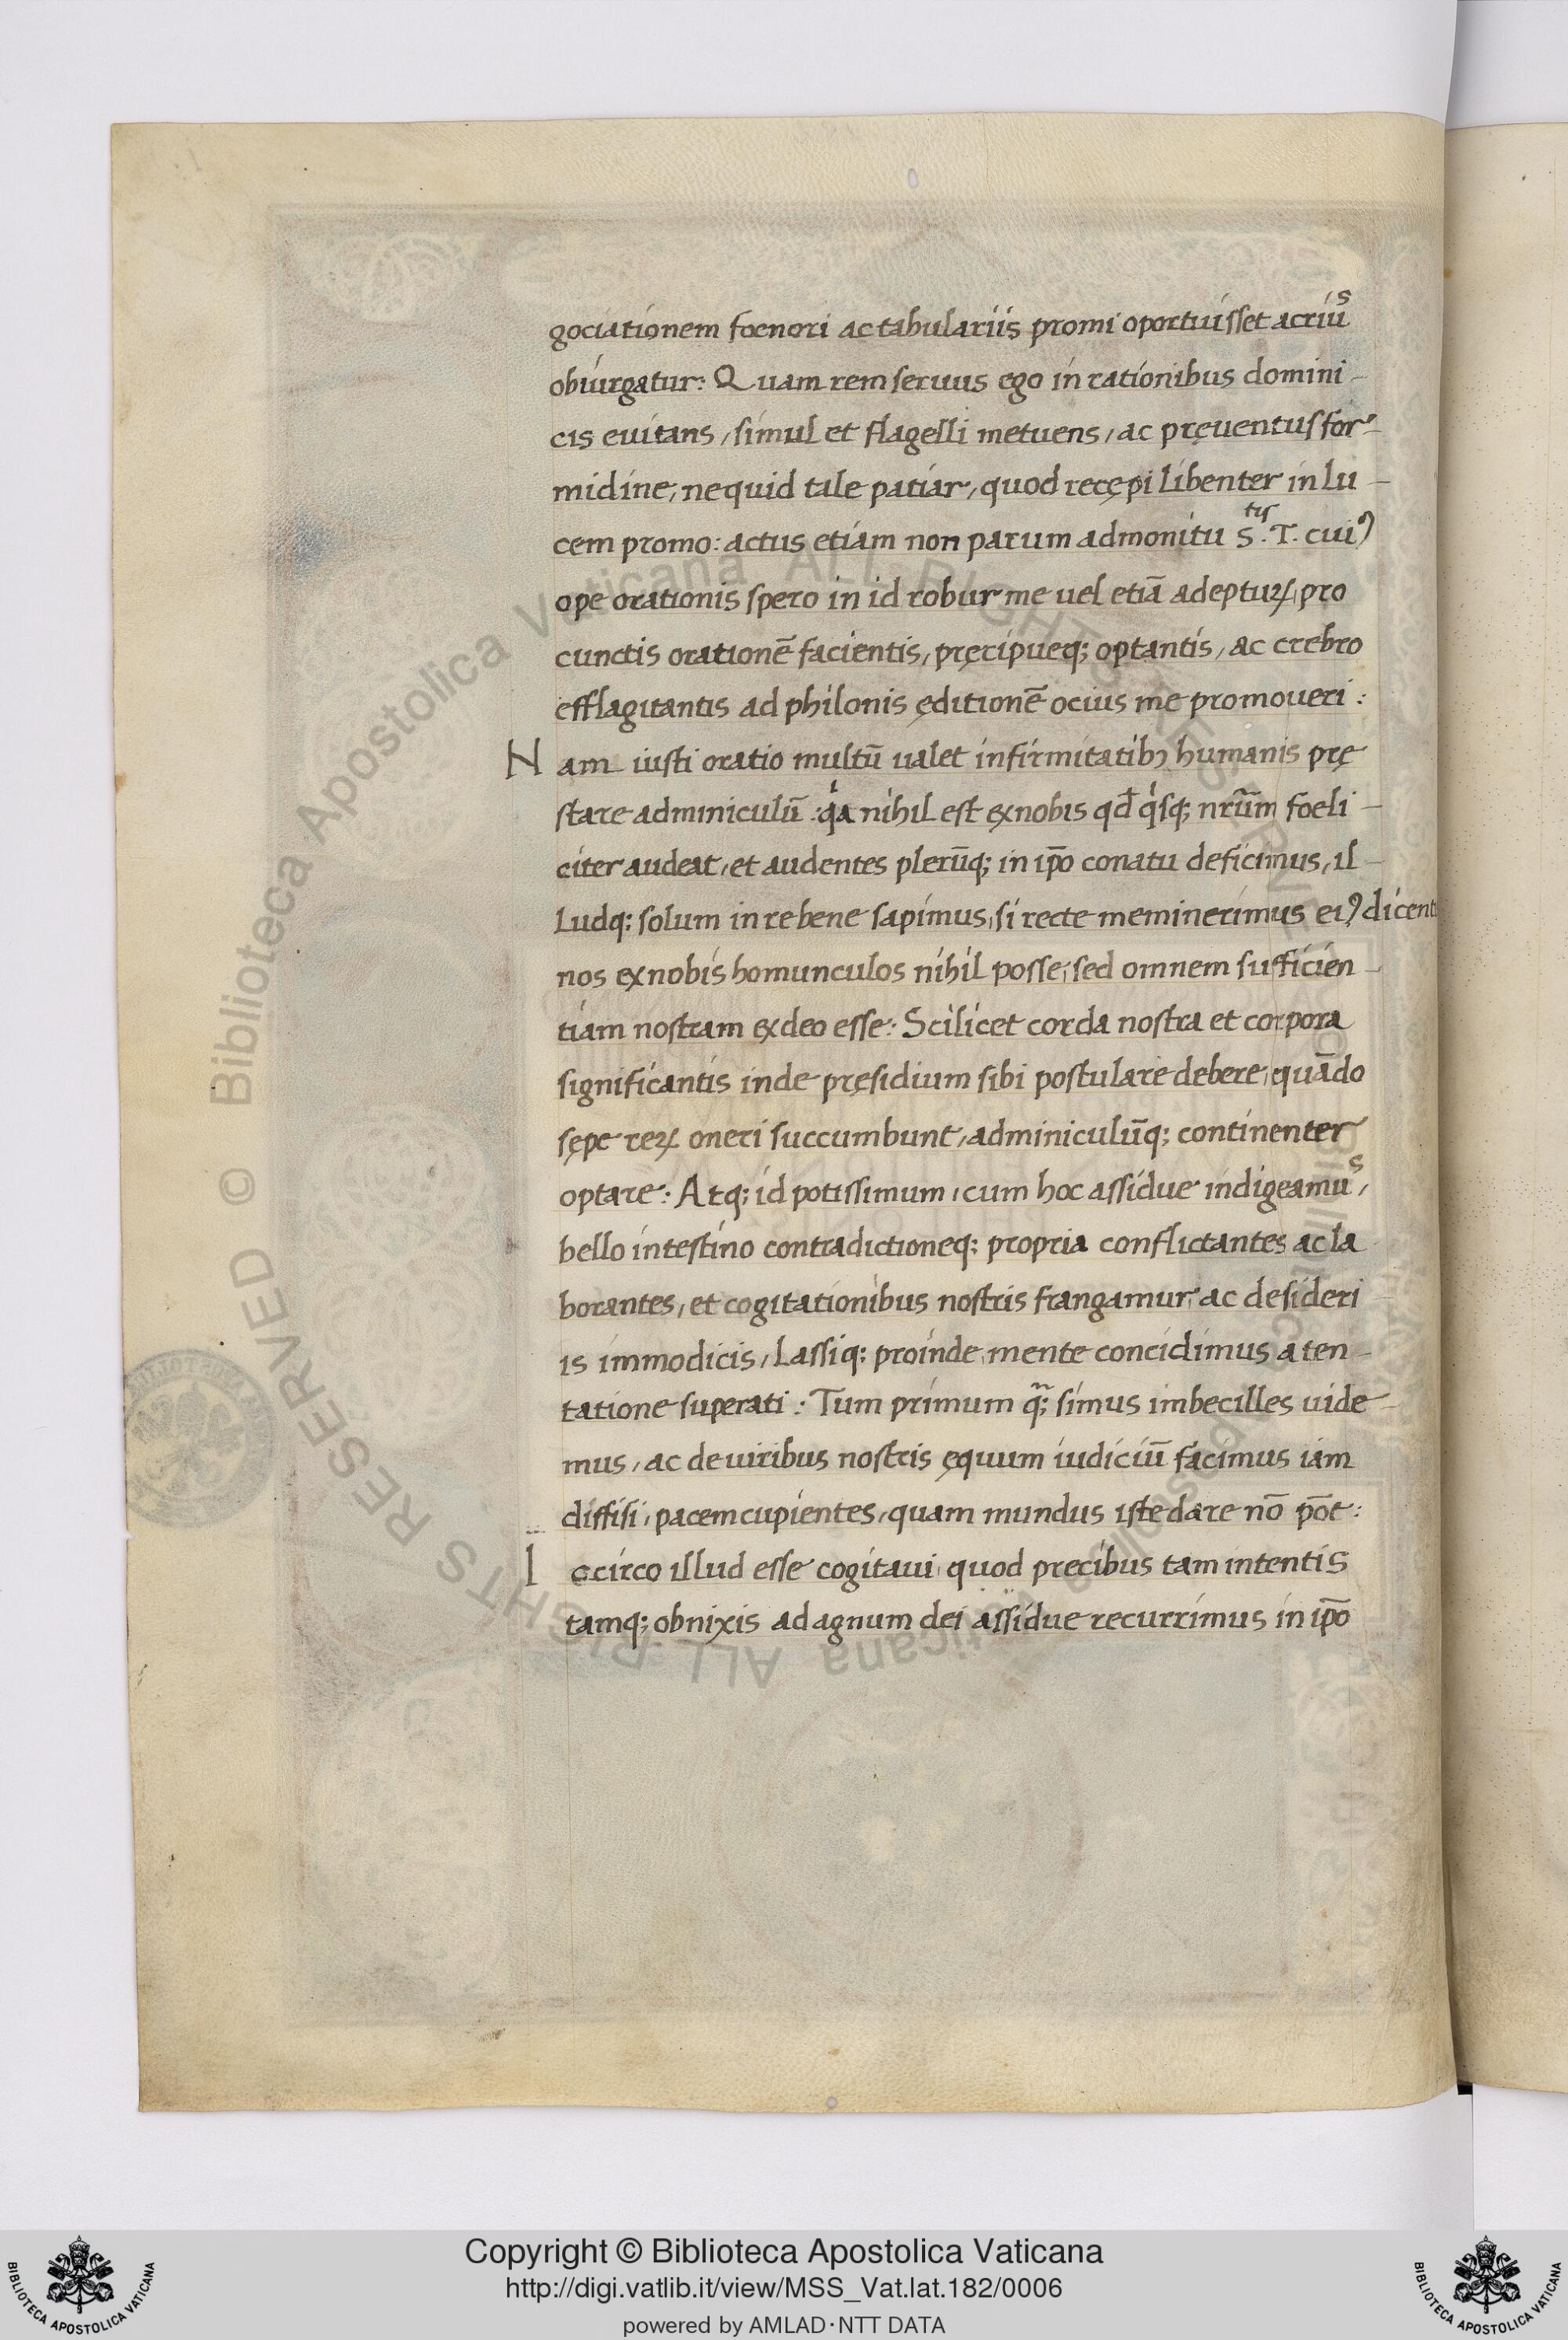 gociationem foenori ac tabulariis promi oportuisset acrius
obiurgatur: Quam rem seruus ego in rationibus domini-
cis euitans, simul et flagelli metuens, ac pręuentus for-
midine, nequid tale patiar, quod recępi libenter in lu-
cem promo: actus etiam non parum admonitu S.tis T. cuiꝰ
ope orationis spero in id robur me uel etiā adeptuꝝ, pro
cunctis orationē facientis, pręcipueq; optantis, ac crebro
efflagitantis ad philonis ęditionē ocius me promoueri:
Nam iusti oratio multū ualet infirmitatibꝫ humanis prę
stare adminiculū: qia nihil est ex nobis qd̄ qisq; nrūm foeli-
citer audeat, et audentes plerūq; in ip̄o conatu deficimus, il-
ludq; solum in re bene sapimus, si recte meminerimus eiꝰ dicent
nos ex nobis homunculos nihil posse, sed omnem sufficien-
tiam nostram ex deo esse: Scilicet corda nostra et corpora
significantis inde pręsidium sibi postulare debere, quādo
sępe reꝝ oneri succumbunt, adminiculūq; continenter
optare: Atq; id potissimum, cum hoc assidue indigeamus,
bello intestino contradictioneq; propria conflictantes ac la
borantes, et cogitationibus nostris frangamur, ac desideri-
is immodicis, Lassiq; proinde, mente concidimus a ten-
tatione superati: Tum primum q̄; simus imbecilles uide-
mus, ac de uiribus nostris ęquum iudiciū facimus iam
diffisi, pacem cupientes, quam mundus iste dare nō pōt:
Iccirco illud esse cogitaui, quod precibus tam intentis
tamq; obnixis ad agnum dei assidue recurrimus in ip̄o
© Biblioteca Apostolica Vaticana ALL RIGHTS RESERVED
Copyright © Biblioteca Apostolica Vaticana
http://digi.vatlib.it/view/MSS_Vat.lat.182/0006
powered by AMLAD·NTT DATA
BIBLIOTECA APOSTOLICA VATICANA
BIBLIOTECA APOSTOLICA VATICANA